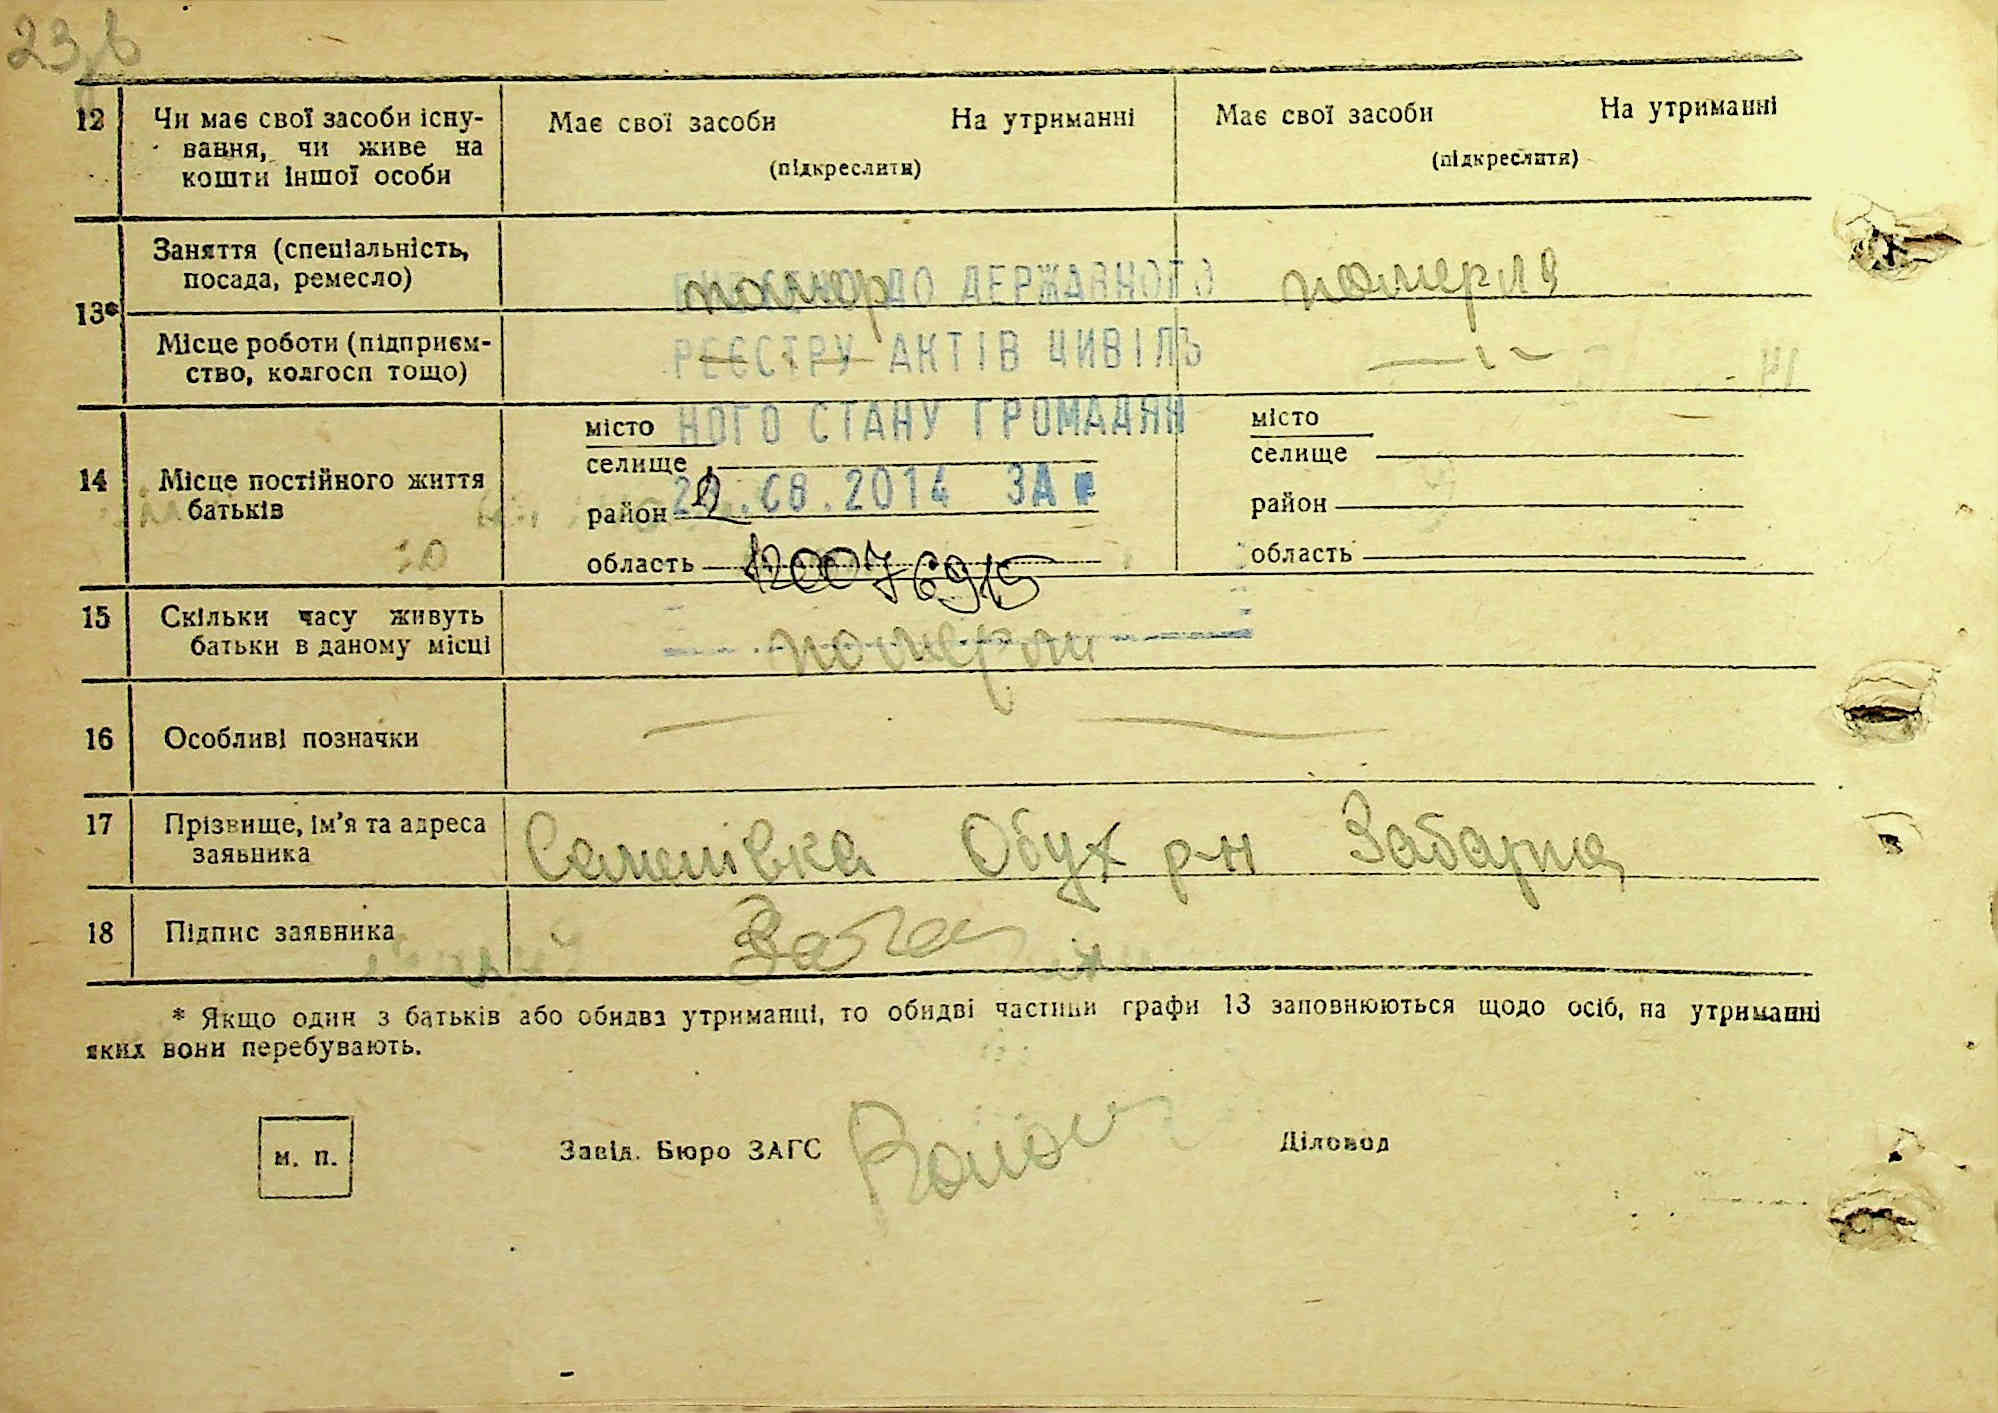 12 Чи має свої засоби існу-
вання, чи живе на
кошти іншої особи
Має свої засоби На утриманні
(підкреслити)
Має свої засоби На утриманні
(підкреслити)
13* Заняття (спеціальність,
посада, ремесло)
помер
померла
Місце роботи (підприєм-
ство, колгосп тощо)
ДО ДЕРЖАВНОГО
РЕЄСТРУ АКТІВ ЦИВІЛЬ
НОГО СТАНУ ГРОМАДЯН
.08.2014 ЗА №
14 Місце постійного життя
батьків
місто
селище
район
область
120076915
місто
селище
район
область
15 Скільки часу живуть
батьки в даному місці
померли
16 Особливі позначки
17 Прізвище, ім'я та адреса
заявника
Семенівка Обух р-н Забарна
18 Підпис заявника
* Якщо один з батьків або обидва утриманці, то обидві частини графи 13 заповнюються щодо осіб, на утриманні
яких вони перебувають.
м. п.
Завід. Бюро ЗАГС
Діловод